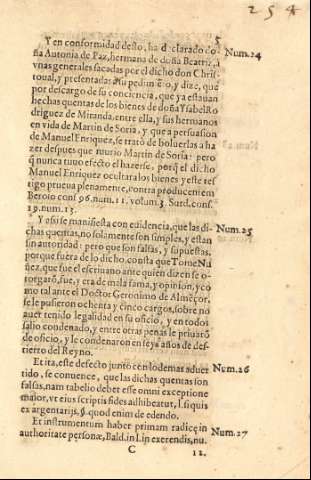 254
5
Y en conformidad desto, ha declarado do-
ña Autonia de Paz, hermana de doña Beatriz, à
vnas generales sacadas por el dicho don Chris-
toual, y presentadas à su pedimẽto, y dize, que
por descargo de su conciencia, que ya estauan
hechas quentas de los bienes de doña Ysabel Ro
driguez de Miranda, entre ella, y sus hermanos
en vida de Martin de Soria, y que a persuasion
de Manuel Enriquez, se tratò de boluerlas a ha
zer despues que murio Martin de Soria: pero
q̃ nunca tuuo efecto el hazerse, porq̃ el dicho
Manuel Enriquez ocultara los bienes y este tes
tigo prueua plenamente, contra producentem
Beroio conf. 96. num. 11. volum. 3. Surd. conf.
19. num. 13.
Num. 24
Y assi se manifiesta con euidencia, que las di-
chas quentas, no solamente son simples, y estan
sin autoridad: pero que son falsas, y supuestas,
porque fuera de lo dicho, consta que Torne Nu
ñez, que fue el escriuano ante quien dizen se o-
torgarõ, fue, y era de mala fama, y opinion, y co
mo tal ante el Doctor Geronimo de Almẽçor,
se le pusieron ochenta y cinco cargos, sobre no
auer tenido legalidad en su oficio, y en todos
salio condenado, y entre otras penas le priuarõ
de oficio, y le condenaron en seys años de des-
tierro del Reyno.
Num. 25
Et ita, este defecto junto con lo demas aduer
tido, se conuence, que las dichas quentas son
falsas, nam tabelio debet esse omni exceptione
maior, vt eius scriptis fides adhibeatur, l. si quis
ex argentarijs, §. quod enim de edendo.
Num. 26
Et instrumentum haber primam radicẽ in
authoritate personæ, Bald. in l. in exerendis, nu.
Num. 27
C
12.